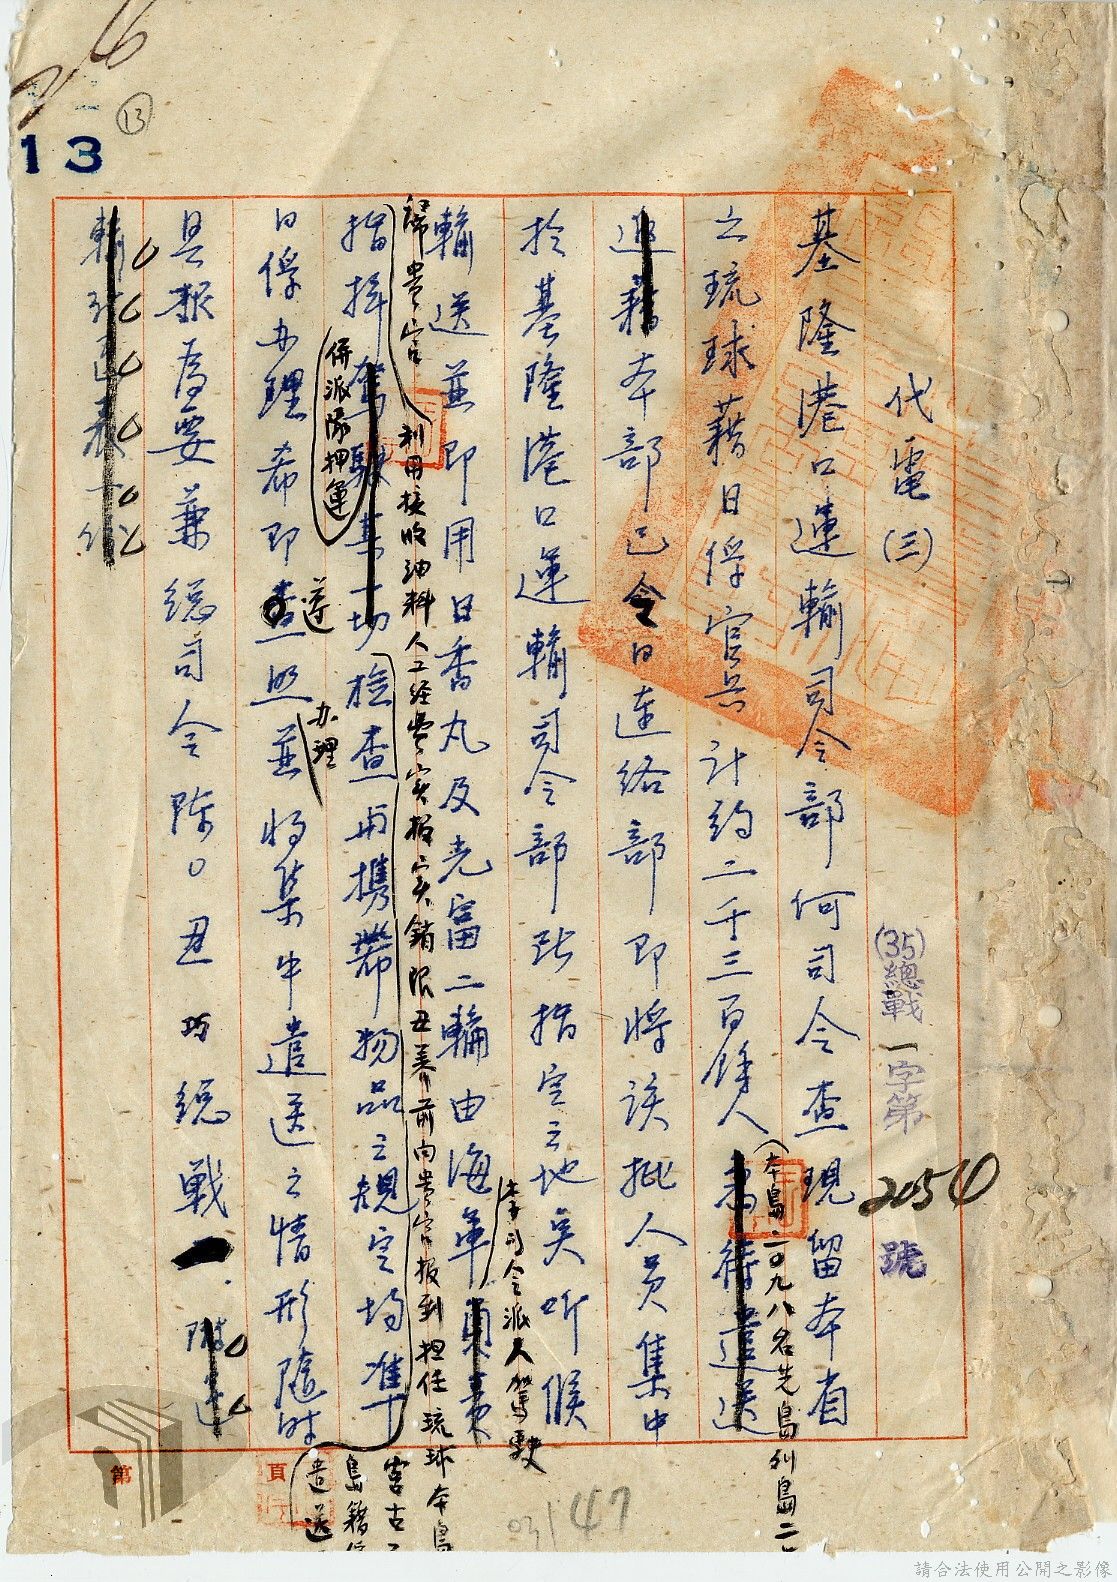 代電(三)
(35)總戰一字第2054號
基隆港口運輸司令部何司令查現留本省
之琉球藉日俘官兵計約二千三百餘人為待遣送
(本島二〇九八名先島列島二
返藉本部已令日連絡部即將該批人員集中
於基隆港口運輸司令部所指定之地點听候
輸送並即用日香丸及光富二輪由海軍
李司令派人駕駛
歸貴官
利用接收油料人工經費實報實銷限丑養前向貴官报到担任琉球本島
宮古
島籍俘
遣送
指揮駕駛其一切檢查與攜帶物品之規定均准
併派隊押運
日俘办理希即查照並將集中遣送之情形隨时
遵
办理
具報為要兼總司令陳〇丑巧總戰一
第 頁
13
13
26
031147
請合法使用公開之影像